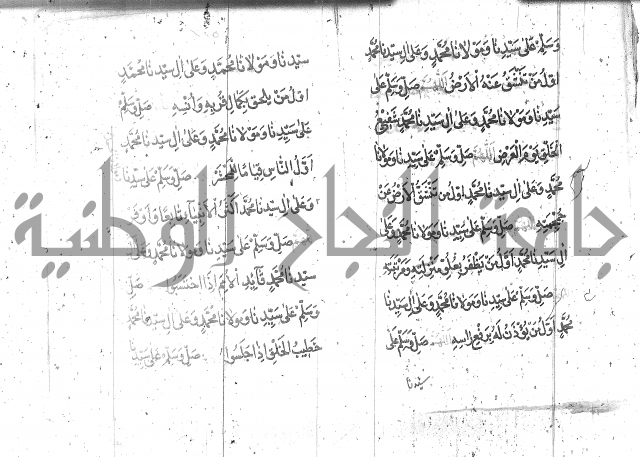 وَسَلِّمْ عَلىٰ سَيِّدِنَا وَمَوْلَانَا مُحَمَّدٍ وَعَلىٰ الِ سَيِّدِنَا مُحَمَّدٍ
اَوَّلُ مَنْ تَنْشَقُّ عَنْهُ الْاَرْضُ اللّٰهُمَّ صَلِّ وَسَلِّمْ عَلىٰ
سَيِّدِنَا وَمَوْلَانَا مُحَمَّدٍ وَعَلىٰ الِ سَيِّدِنَا مُحَمَّدٍ شَفِيْعُ
الْخَلْقِ يَوْمَ الْعَرْضِ اللّٰهُمَّ صَلِّ وَسَلِّمْ عَلىٰ سَيِّدِنَا وَمَوْلَانَا
مُحَمَّدٍ وَعَلىٰ الِ سَيِّدِنَا مُحَمَّدٍ اَوَّلُ مَنْ تَنْشَقُّ الْاَرْضُ عَنْ
صَلِّ وَسَلِّمْ عَلىٰ سَيِّدِنَا وَمَوْلَانَا مُحَمَّدٍ وَعَلىٰ
الِ سَيِّدِنَا مُحَمَّدٍ اَوَّلُ مَنْ
صَلِّ وَسَلِّمْ عَلىٰ سَيِّدِنَا وَمَوْلَانَا مُحَمَّدٍ وَعَلىٰ الِ سَيِّدِنَا
مُحَمَّدٍ اَوَّلُ مَنْ يُؤْذَنُ لَهُ بِرَفْعِ رَاْسِهِ صَلِّ وَسَلِّمْ عَلىٰ
سيدنا
سَيِّدِنَا وَمَوْلَانَا مُحَمَّدٍ وَعَلىٰ الِ سَيِّدِنَا مُحَمَّدٍ
اَوَّلُ مَنْ يَلْحَقُ بِكَمَالِ قُرْبِهِ صَلِّ وَسَلِّمْ
عَلىٰ سَيِّدِنَا وَمَوْلَانَا مُحَمَّدٍ وَعَلىٰ الِ سَيِّدِنَا مُحَمَّدٍ
اَوَّلُ النَّاسِ قِيَامًا صَلِّ وَسَلِّمْ عَلىٰ سَيِّدِنَا
وَعَلىٰ الِ سَيِّدِنَا مُحَمَّدٍ اَكْثَرُ الْاَنْبِيَآءِ تَابِعًا
صَلِّ وَسَلِّمْ عَلىٰ سَيِّدِنَا وَمَوْلَانَا مُحَمَّدٍ وَعَلىٰ
سَيِّدِنَا مُحَمَّدٍ قَآئِدِ الْاُمَمِ اِذَا صَلِّ
وَسَلِّمْ عَلىٰ سَيِّدِنَا وَمَوْلَانَا مُحَمَّدٍ وَعَلىٰ الِ سَيِّدِنَا مُحَمَّدٍ
خَطِيْبُ الْخَلْقِ اِذَا جَلَسُوْا صَلِّ وَسَلِّمْ عَلىٰ سَيِّدِنَا
جامعة النجاح الوطنية